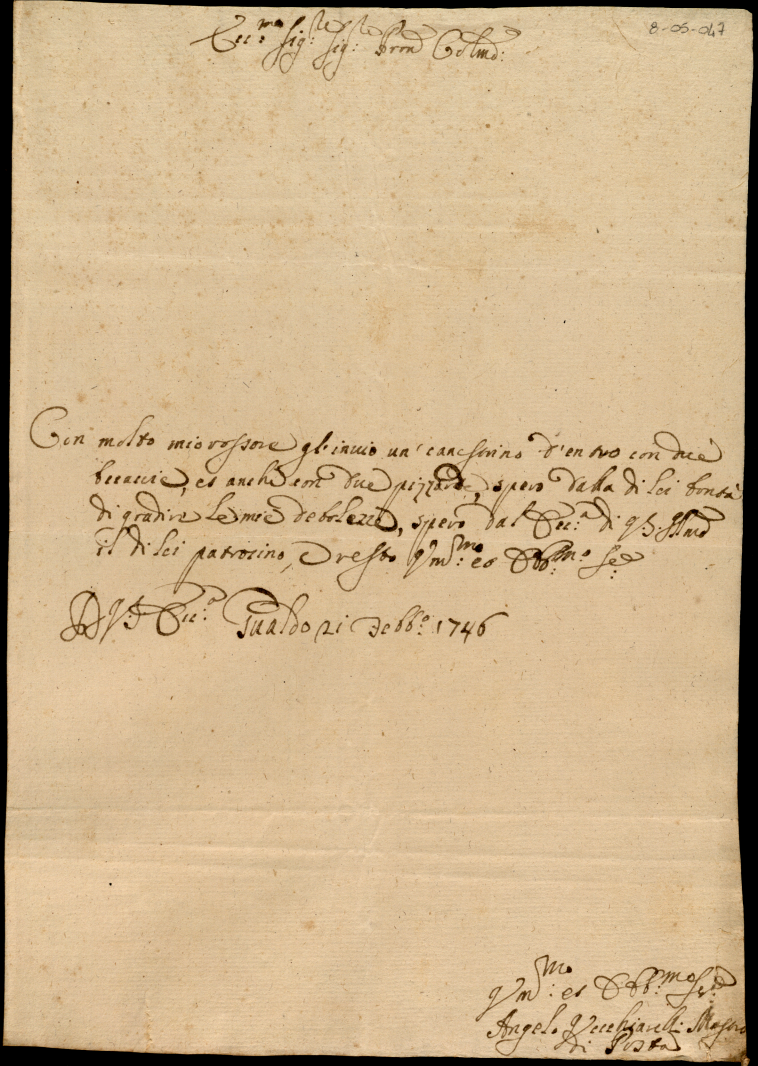 8-05-047
Ecc.mo Sig.re Sig.re Pron Colmo:
Con molto mio rossore gl'invio un' canestrino d'entro con due
beccaccie, et anche con due pizzarde, spero dalla di lei bontà
di gradire le mie debolezze, spero dal Ecc.a di V.S. Illma
il di lei patrocino, e resto Vm.mo et Obb.mo Se
D V.S Ecc.a Gualdo 21 Febb.o 1746
Vm.mo et Obb.mo Se
Angelo Vecchiarelli Mastro
di Posta